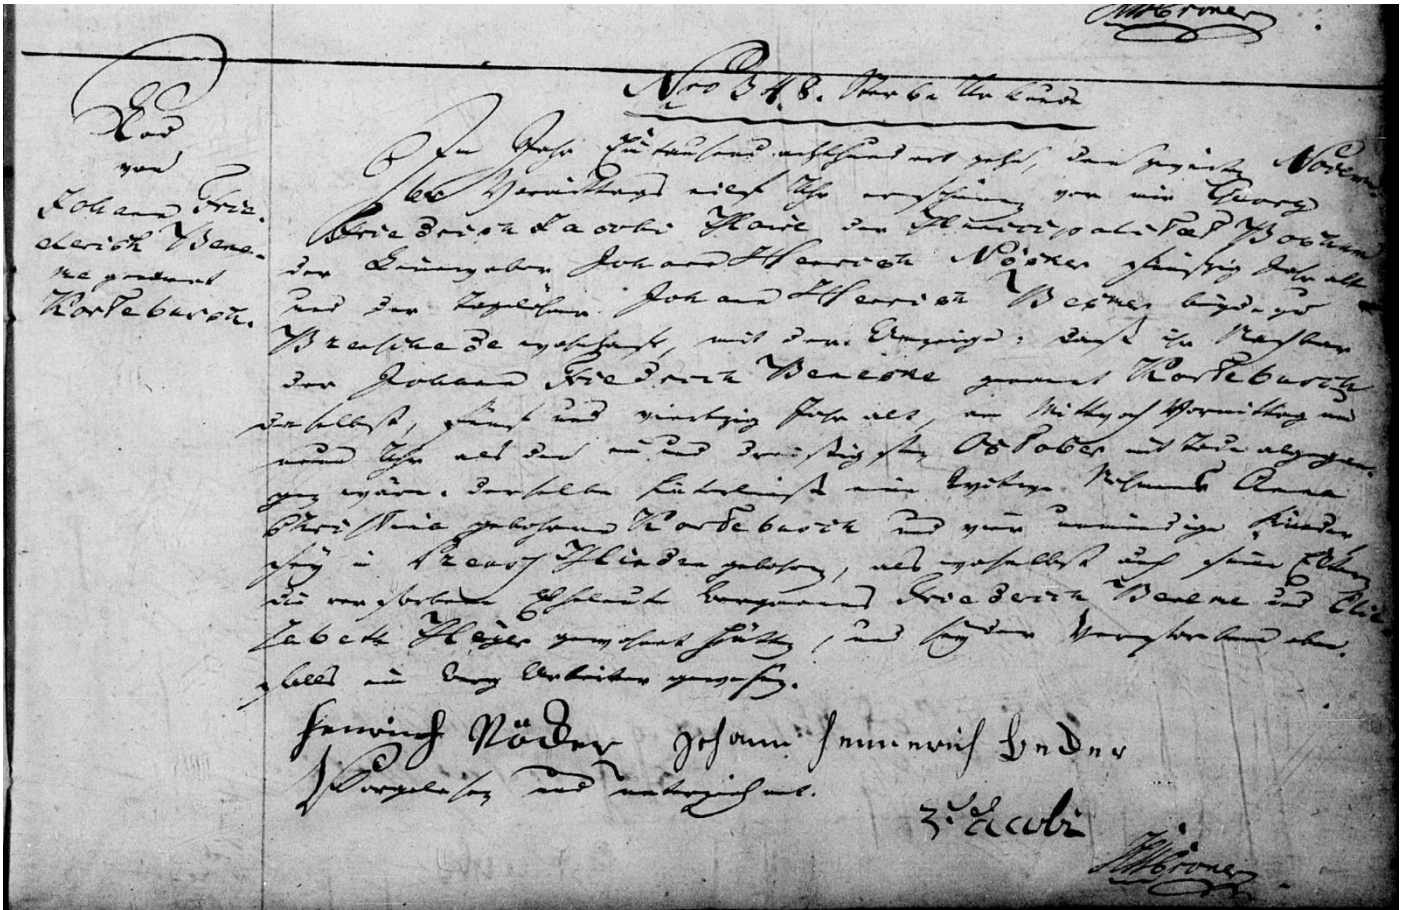 Nro 348. Sterbe Urkunde
Tod
von
Johann Frie-
derich Bene-
ke genannt
Kortebusch.
Im Jahr Eintausend achthundert zehn, den zweiten Novem-
ber Vormittags eilf Uhr erschienen vor mir Georg
Friedrich Jacobi Maire der Municipalitæt Bochum
der Johann Henrich fünfzig Jahr alt
und der Tagelöhner Johann Henrich Becker beyde zu
Brenschede wohnhaft, mit der Anzeige: daß ihr Nachbar
der Johann Friedrich Benecke genannt Kortebusch
daselbst, fünf und vierzig Jahr alt, am Mittwoch Vormittag um
neun Uhr als den ein und dreißigsten October mit Tode abgegan-
gen wäre. derselbe hinterließ eine Wittwe Nahmens Anna
Christina gebohrne Kortebusch und vier unmündige Kinder
sey in Minden gebohren, als woselbst auch seine Eltern
die verstorbene Eheleute Bergmann Friederich Beneke und Elis-
abeth Meyer gewohnt hätten, und sey der Verstorbene eben-
falls ein Berg Arbeiter gewesen.
Henrich Johann Hennerich Becker
Vorgelesen und unterzeichnet.
Jacobi